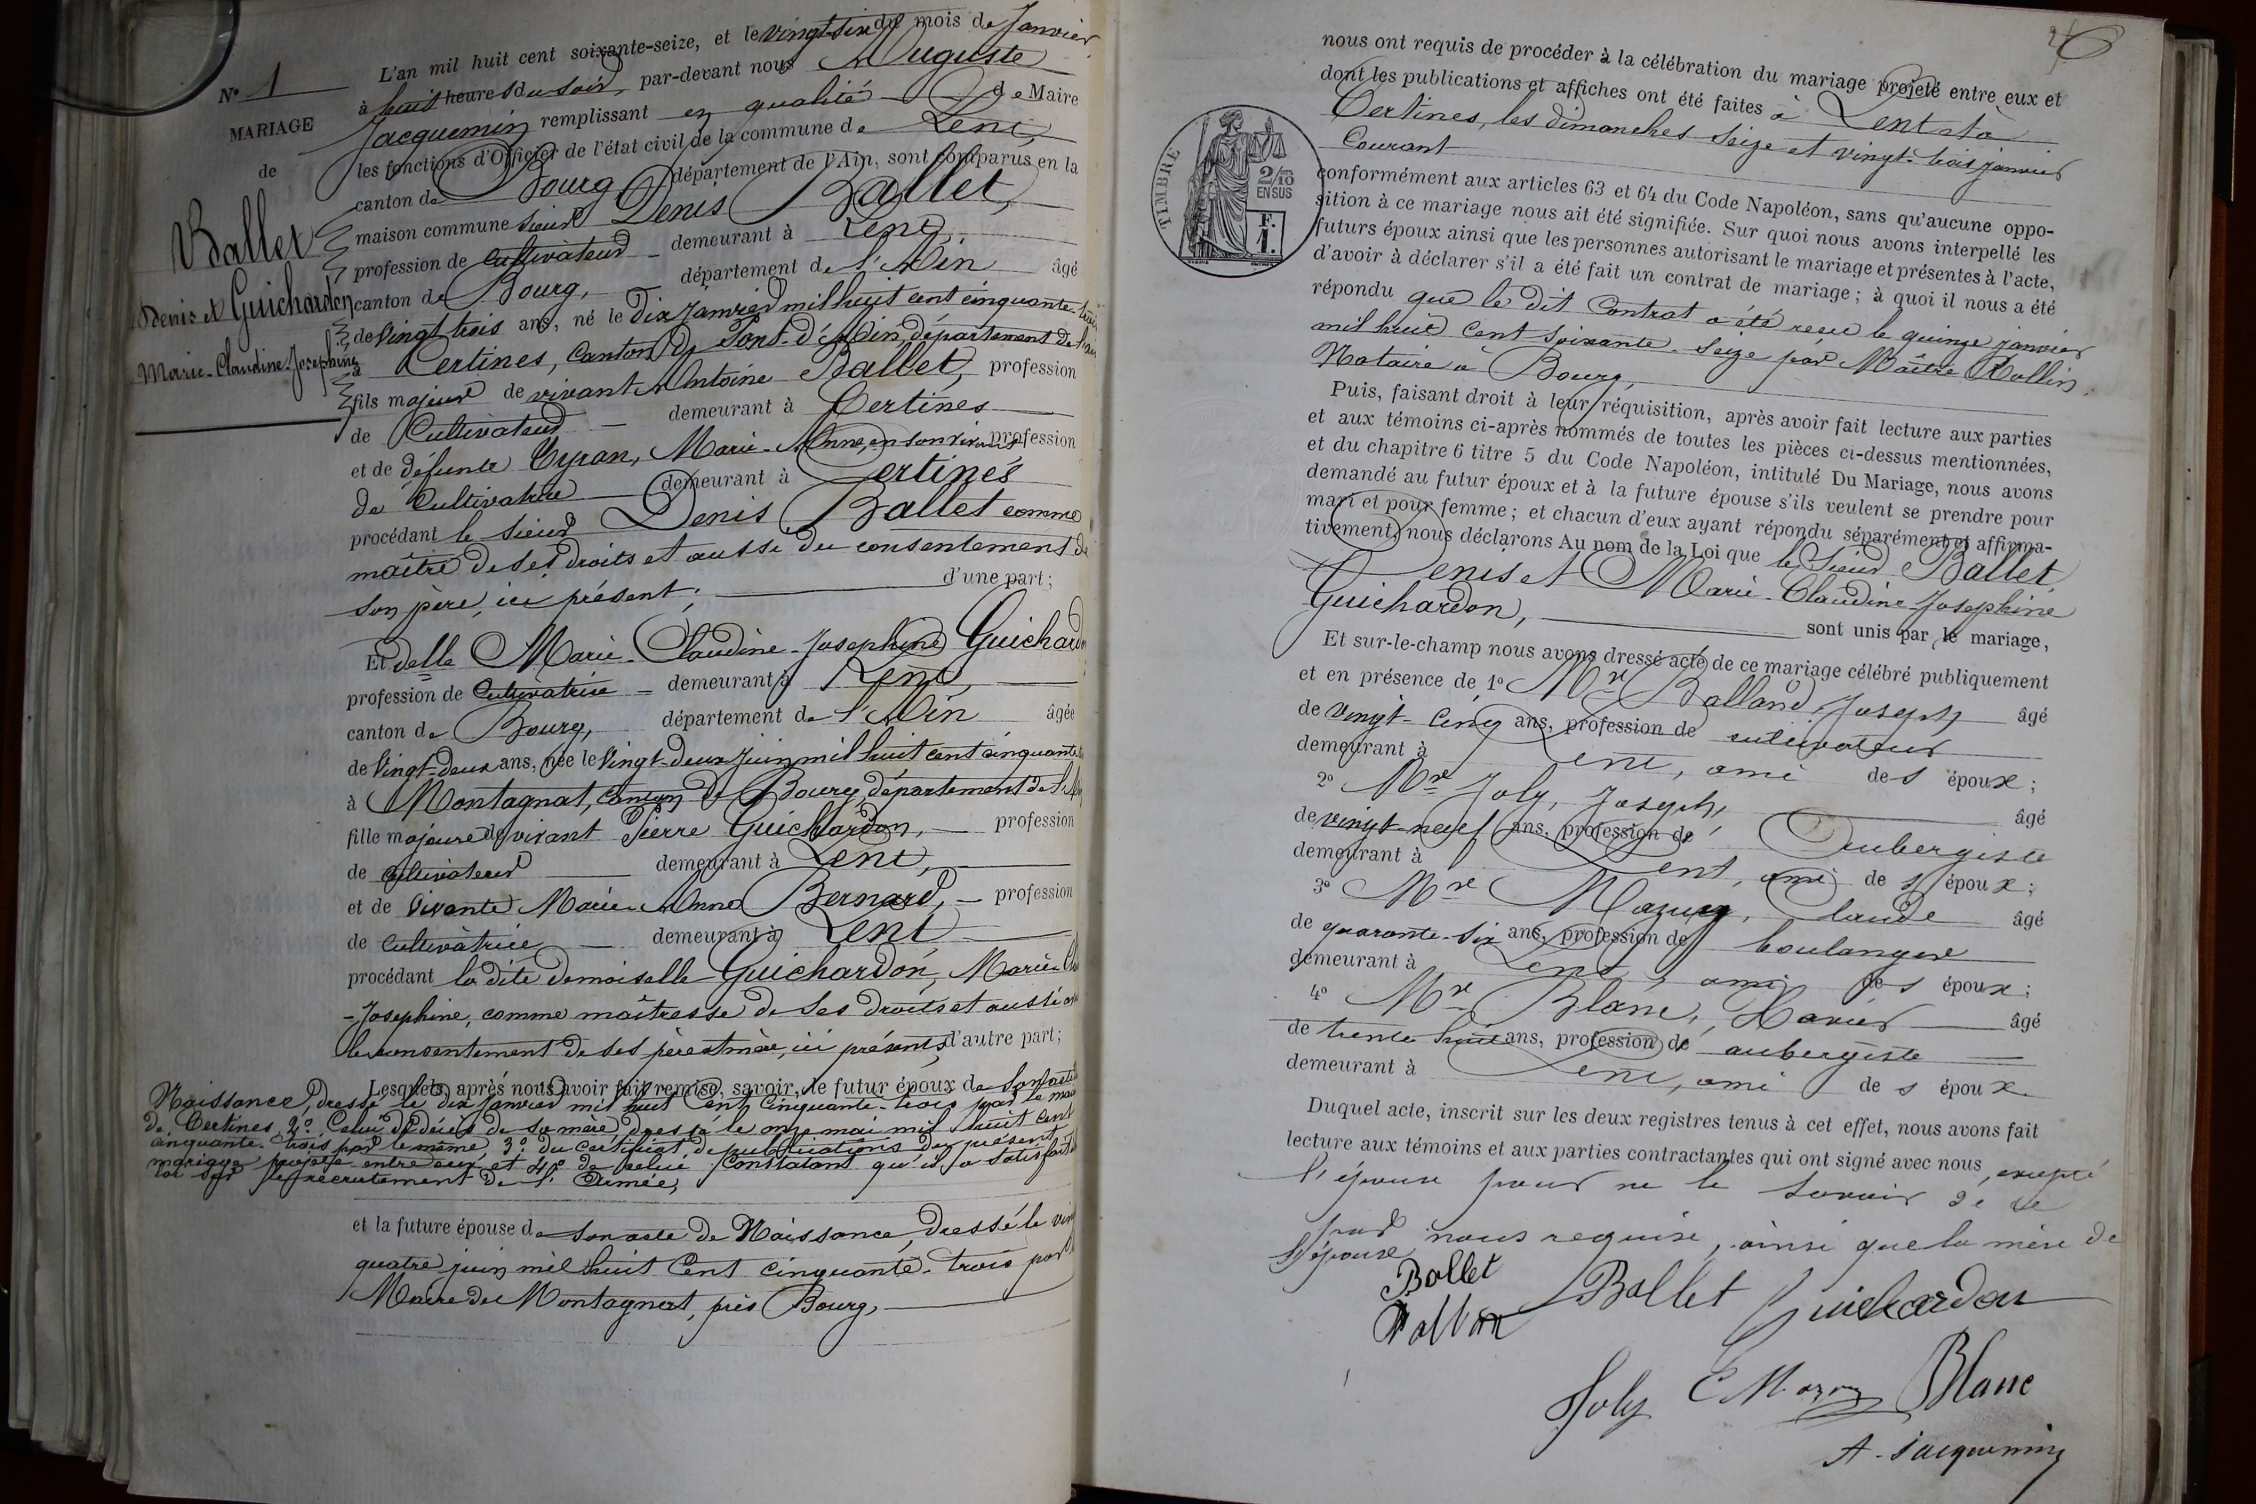 N° 1
MARIAGE
de
Ballet
Denis et Guichardon
Marie-Claudine-Josephine
L'an mil huit cent soixante-seize, et le vingt-six du mois de Janvier
à huit heures du soir, par-devant nous Auguste
Jacquemin remplissant en qualité de Maire
les fonctions d'Officier de l'état civil de la commune de Lent,
canton de Bourg département de l'Ain, sont comparus en la
maison commune sieur Denis Ballet,
profession de cultivateur demeurant à Lent,
canton de Bourg, département de l'Ain âgé
de vingt trois ans, né le dix janvier mil huit cent cinquante-trois
à Certines, canton de Pont-d'Ain, département de l'Ain
fils majeur de vivant Antoine Ballet, profession
de Cultivateur demeurant à Certines
et de défunte Tyran, Marie-Anne, en son vivant profession
de Cultivatrice demeurant à Certines
procédant le sieur Denis Ballet comme
maître de ses droits et aussi du consentement de
son père, ici présent; d'une part;
Et delle Marie-Claudine-Josephine Guichardon
profession de Cultivatrice demeurant à Lent,
canton de Bourg, département de l'Ain âgée
de Vingt-deux ans, née le Vingt-deux juin mil huit cent cinquante
à Montagnat, canton de Bourg, département de l'Ain
fille majeure de vivant Pierre Guichardon, profession
de cultivateur demeurant à Lent,
et de vivante Marie-Anne Bernard, profession
de cultivatrice demeurant à Lent
procédant la dite demoiselle Guichardon, Marie-Cl
-Josephine, comme maîtresse de ses droits et aussi
le consentement de ses père et mère, ici présents, d'autre part;
Lesquels, après nous avoir fait remise, savoir, le futur époux de son acte
Naissance, dressé le dix janvier mil huit cent cinquante-trois par le maire
de Certines, 2° Celui de décès de sa mère dressé le onze mai mil huit cent
cinquante-trois par le même, 3° du certificat de publications du présent
mariage projeté entre eux et 4° de celui constatant qu'il a satisfait
loi sur le recrutement de l'Armée,
et la future épouse de son acte de Naissance, dressé le vingt
quatre juin mil huit Cent cinquante-trois par
Maire de Montagnat, près Bourg,
nous ont requis de procéder à la célébration du mariage projeté entre eux et
dont les publications et affiches ont été faites à Lent et à
Certines, les dimanches seize et vingt-trois janvier
Courant
TIMBRE
2/10
EN SUS
F.
1.
conformément aux articles 63 et 64 du Code Napoléon, sans qu'aucune oppo-
sition à ce mariage nous ait été signifiée. Sur quoi nous avons interpellé les
futurs époux ainsi que les personnes autorisant le mariage et présentes à l'acte,
d'avoir à déclarer s'il a été fait un contrat de mariage; à quoi il nous a été
répondu que le dit Contrat a été reçu le quinze janvier
mil huit cent soixante-seize par Maître Rollin
Notaire à Bourg,
Puis, faisant droit à leur réquisition, après avoir fait lecture aux parties
et aux témoins ci-après nommés de toutes les pièces ci-dessus mentionnées,
et du chapitre 6 titre 5 du Code Napoléon, intitulé Du Mariage, nous avons
demandé au futur époux et à la future épouse s'ils veulent se prendre pour
mari et pour femme; et chacun d'eux ayant répondu séparément et affirma-
tivement, nous déclarons Au nom de la Loi que le Sieur Ballet,
Denis et Marie-Claudine-Josephine
Guichardon,
sont unis par le mariage,
Et sur-le-champ nous avons dressé acte de ce mariage célébré publiquement
et en présence de 1° Mr Balland, Joseph âgé
de vingt-cinq ans, profession de cultivateur
demeurant à Lent, ami des époux;
2° Mr Joly, Joseph, âgé
de vingt-neuf ans, profession de Aubergiste
demeurant à Lent, ami des époux;
3° Mr Mazuy, Claude âgé
de quarante-six ans, profession de boulanger
demeurant à Lent, ami des époux;
4° Mr Blanc, Xavier âgé
de trente huit ans, profession de aubergiste
demeurant à Lent, ami des époux
Duquel acte, inscrit sur les deux registres tenus à cet effet, nous avons fait
lecture aux témoins et aux parties contractantes qui ont signé avec nous, excepté
l'épouse pour ne le savoir de ce
par nous requise, ainsi que la mère de
l'épouse
Ballet
Ballet Guichardon
Joly C Mazuy Blanc
A. Jacquemin